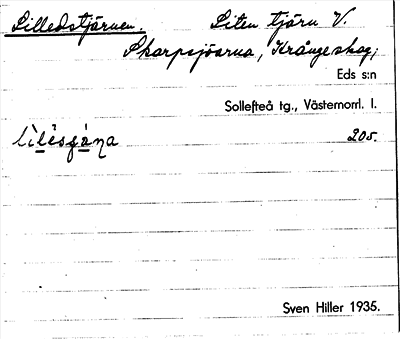 Lilledstjärnen. Liten tjärn V.
Skarpsjöarna, Krångeskog,
Eds s:n
Sollefteå tg., Västernorrl. l.
205.
Sven Hiller 1935.